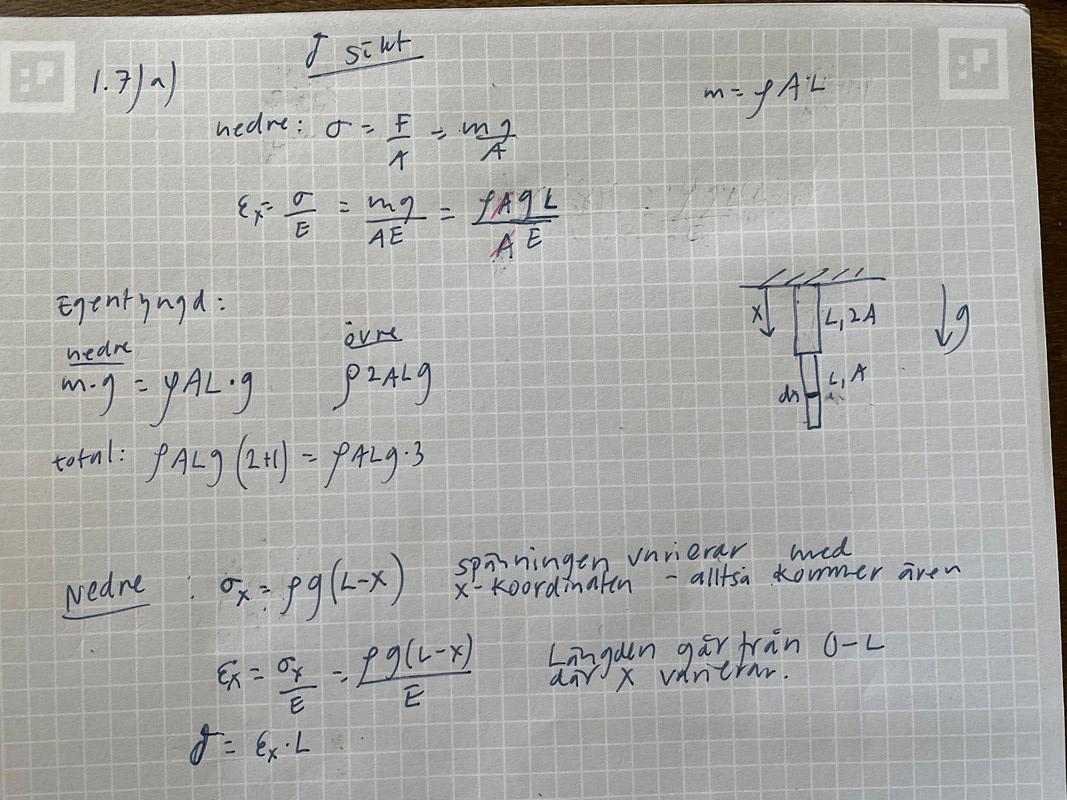 δ sökt
1.7) a)
m = ρAL
nedre: σ = F/A = mg/A
εx = σ/E = mg/AE = ρAgL/AE
Egentyngd:
nedre övre
m·g = ρAL·g ρ2ALg
total: ρALg(2+1) = ρALg·3
x L, 2A g
L, A
dx
Nedre : σx = ρg(L-x) spänningen varierar med
x-koordinaten - alltså kommer även
εx = σx/E = ρg(L-x)/E Längden går från 0-L
där x varierar.
δ = εx·L